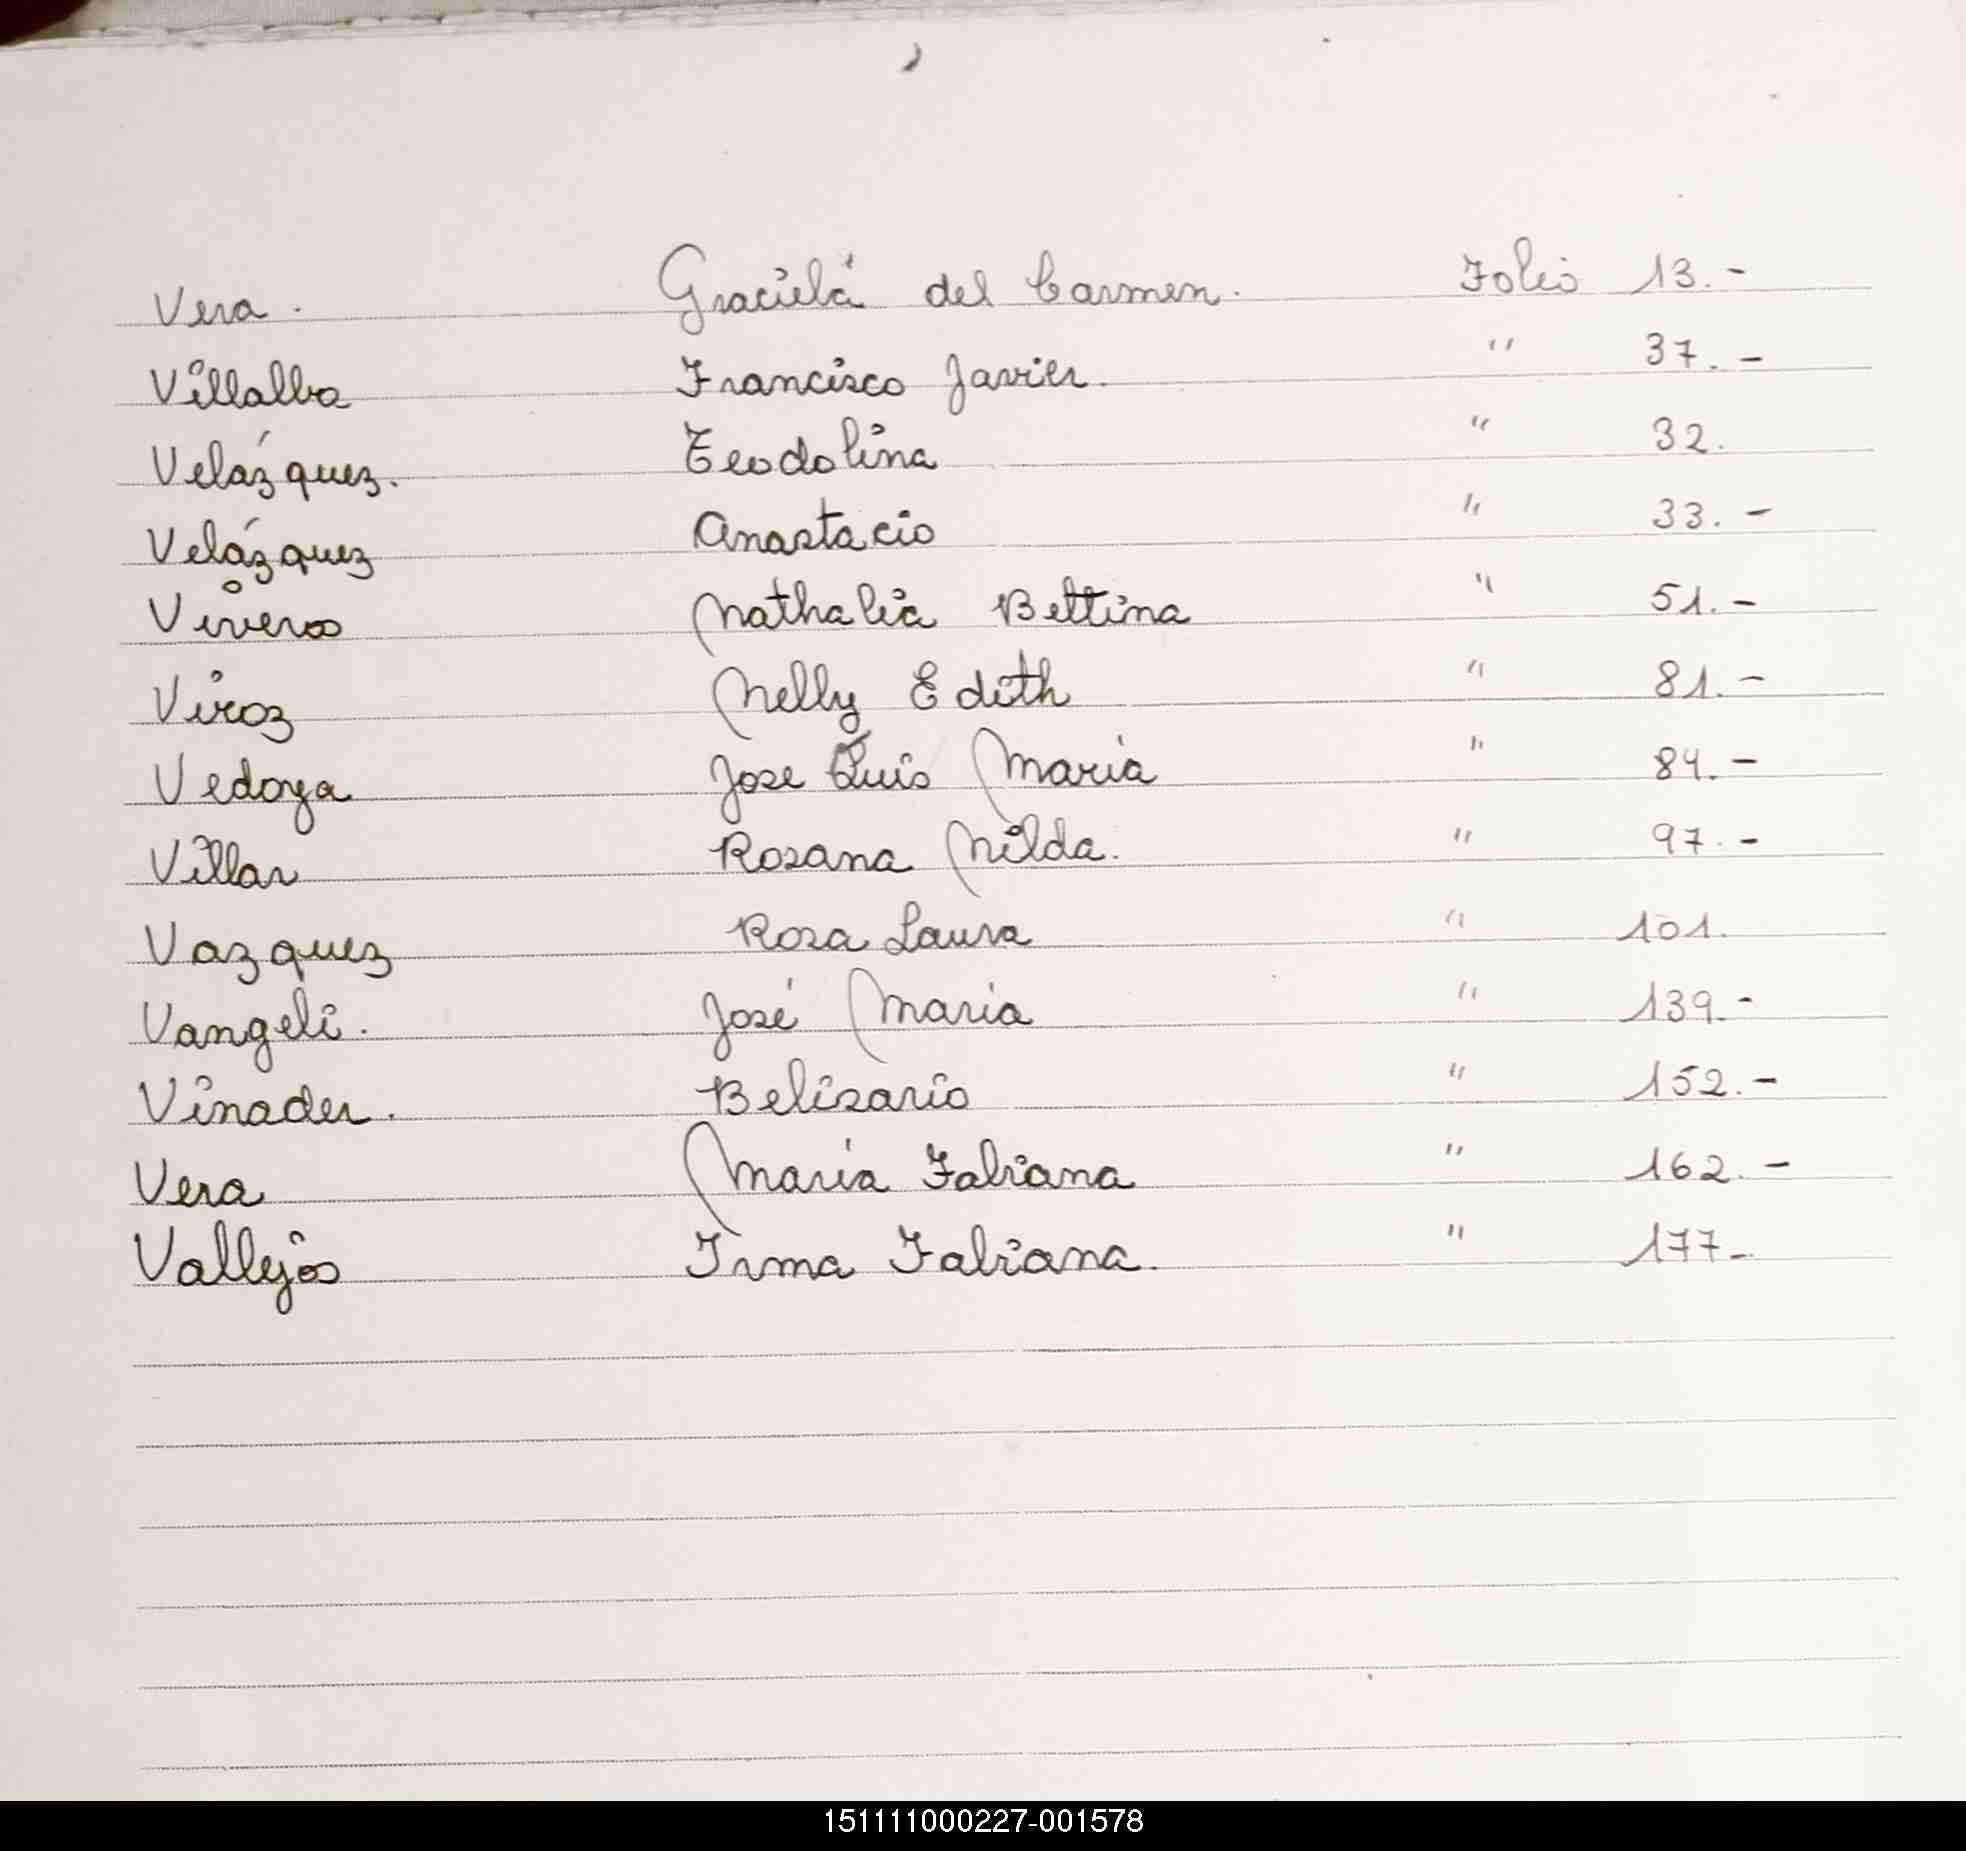 Vera. Graciela del Carmen. Folio 13.-
Villalba Francisco Javier. " 37.-
Velázquez. Teodolina " 32.
Velázquez Anastacio " 33.-
Viveros Nathalia Bettina " 51.-
Viroz Nelly Edith " 81.-
Vedoya Jose Luis Maria " 84.-
Villar Rosana Nilda. " 97.-
Vazquez Rosa Laura " 101.
Vangeli. José Maria " 139.-
Vinader. Belisario " 152.-
Vera Maria Fabiana " 162.-
Vallejos Irma Fabiana. " 177-
151111000227-001578